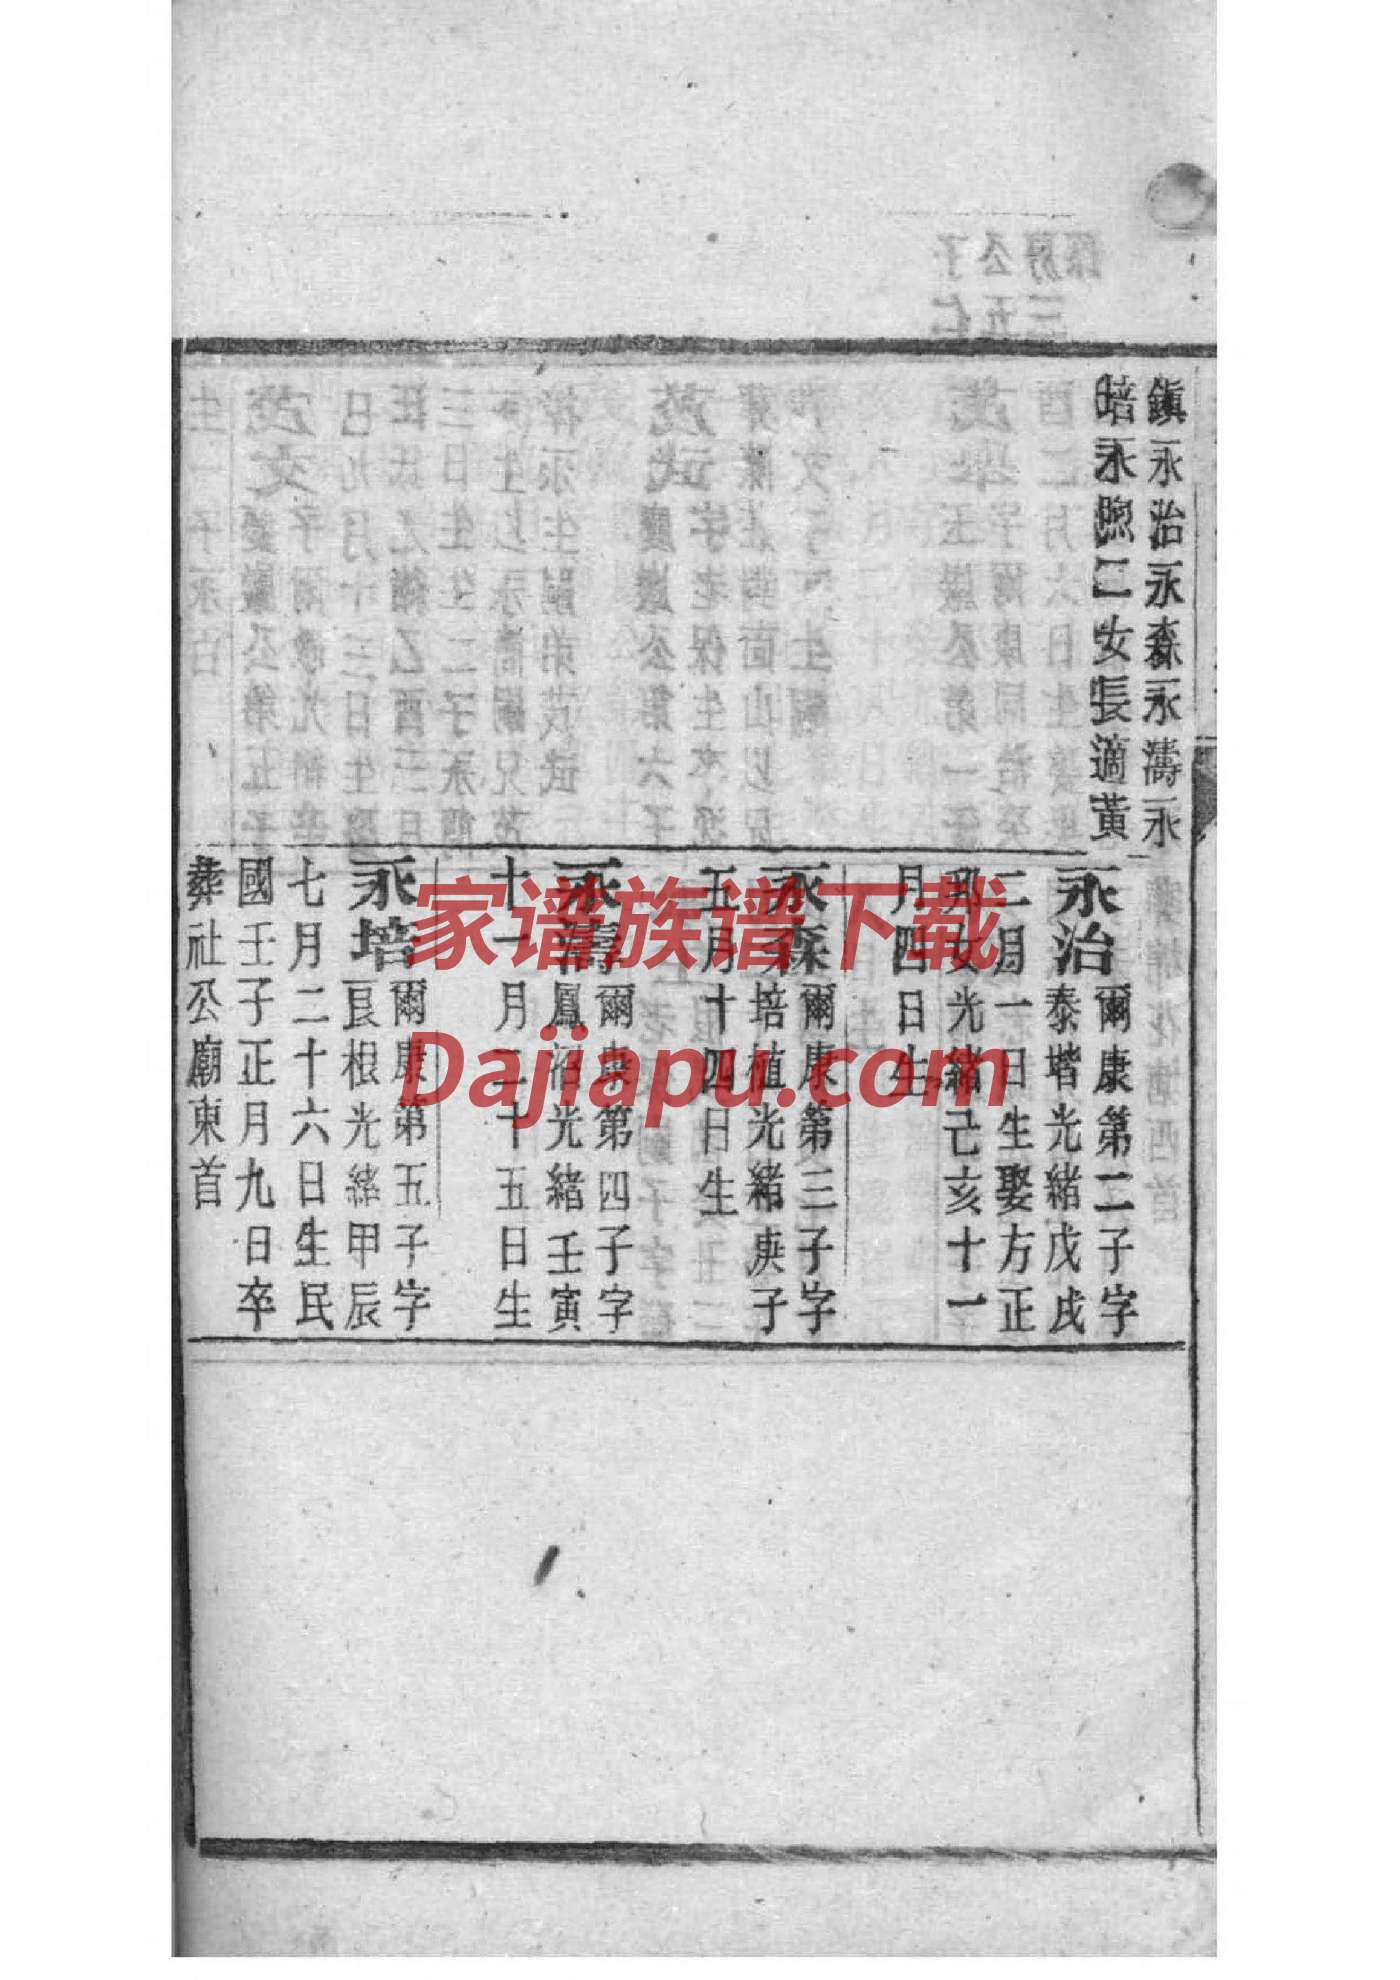 鎭永治永森永濤永
培永煦二女長適黃
永治爾康第二子字
泰堦光緒戊戌
二月一日生娶方正
邦女光緒己亥十一
月四日生
永森爾康第三子字
培植光緒庚子
五月十四日生
永濤爾康第四子字
鳳沼光緒壬寅
十一月二十五日生
永培爾康第五子字
艮根光緒甲辰
七月二十六日生民
國壬子正月九日卒
葬社公廟東首
家谱族谱下载
Dajiapu.com